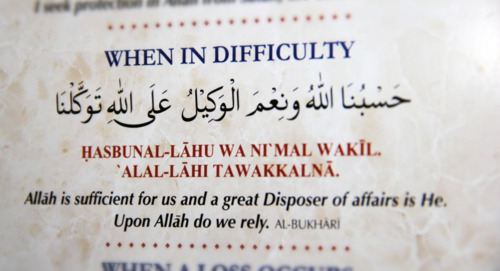 I seek protection in Allah from
WHEN IN DIFFICULTY
حَسْبُنَا اللهُ وَنِعْمَ الْوَكِيْلُ عَلَى اللهِ تَوَكَّلْنَا
ḤASBUNAL-LĀHU WA NI`MAL WAKĪL.
`ALAL-LĀHI TAWAKKALNĀ.
Allāh is sufficient for us and a great Disposer of affairs is He.
Upon Allāh do we rely. AL-BUKHĀRĪ
WHEN A LOSS OCCURS